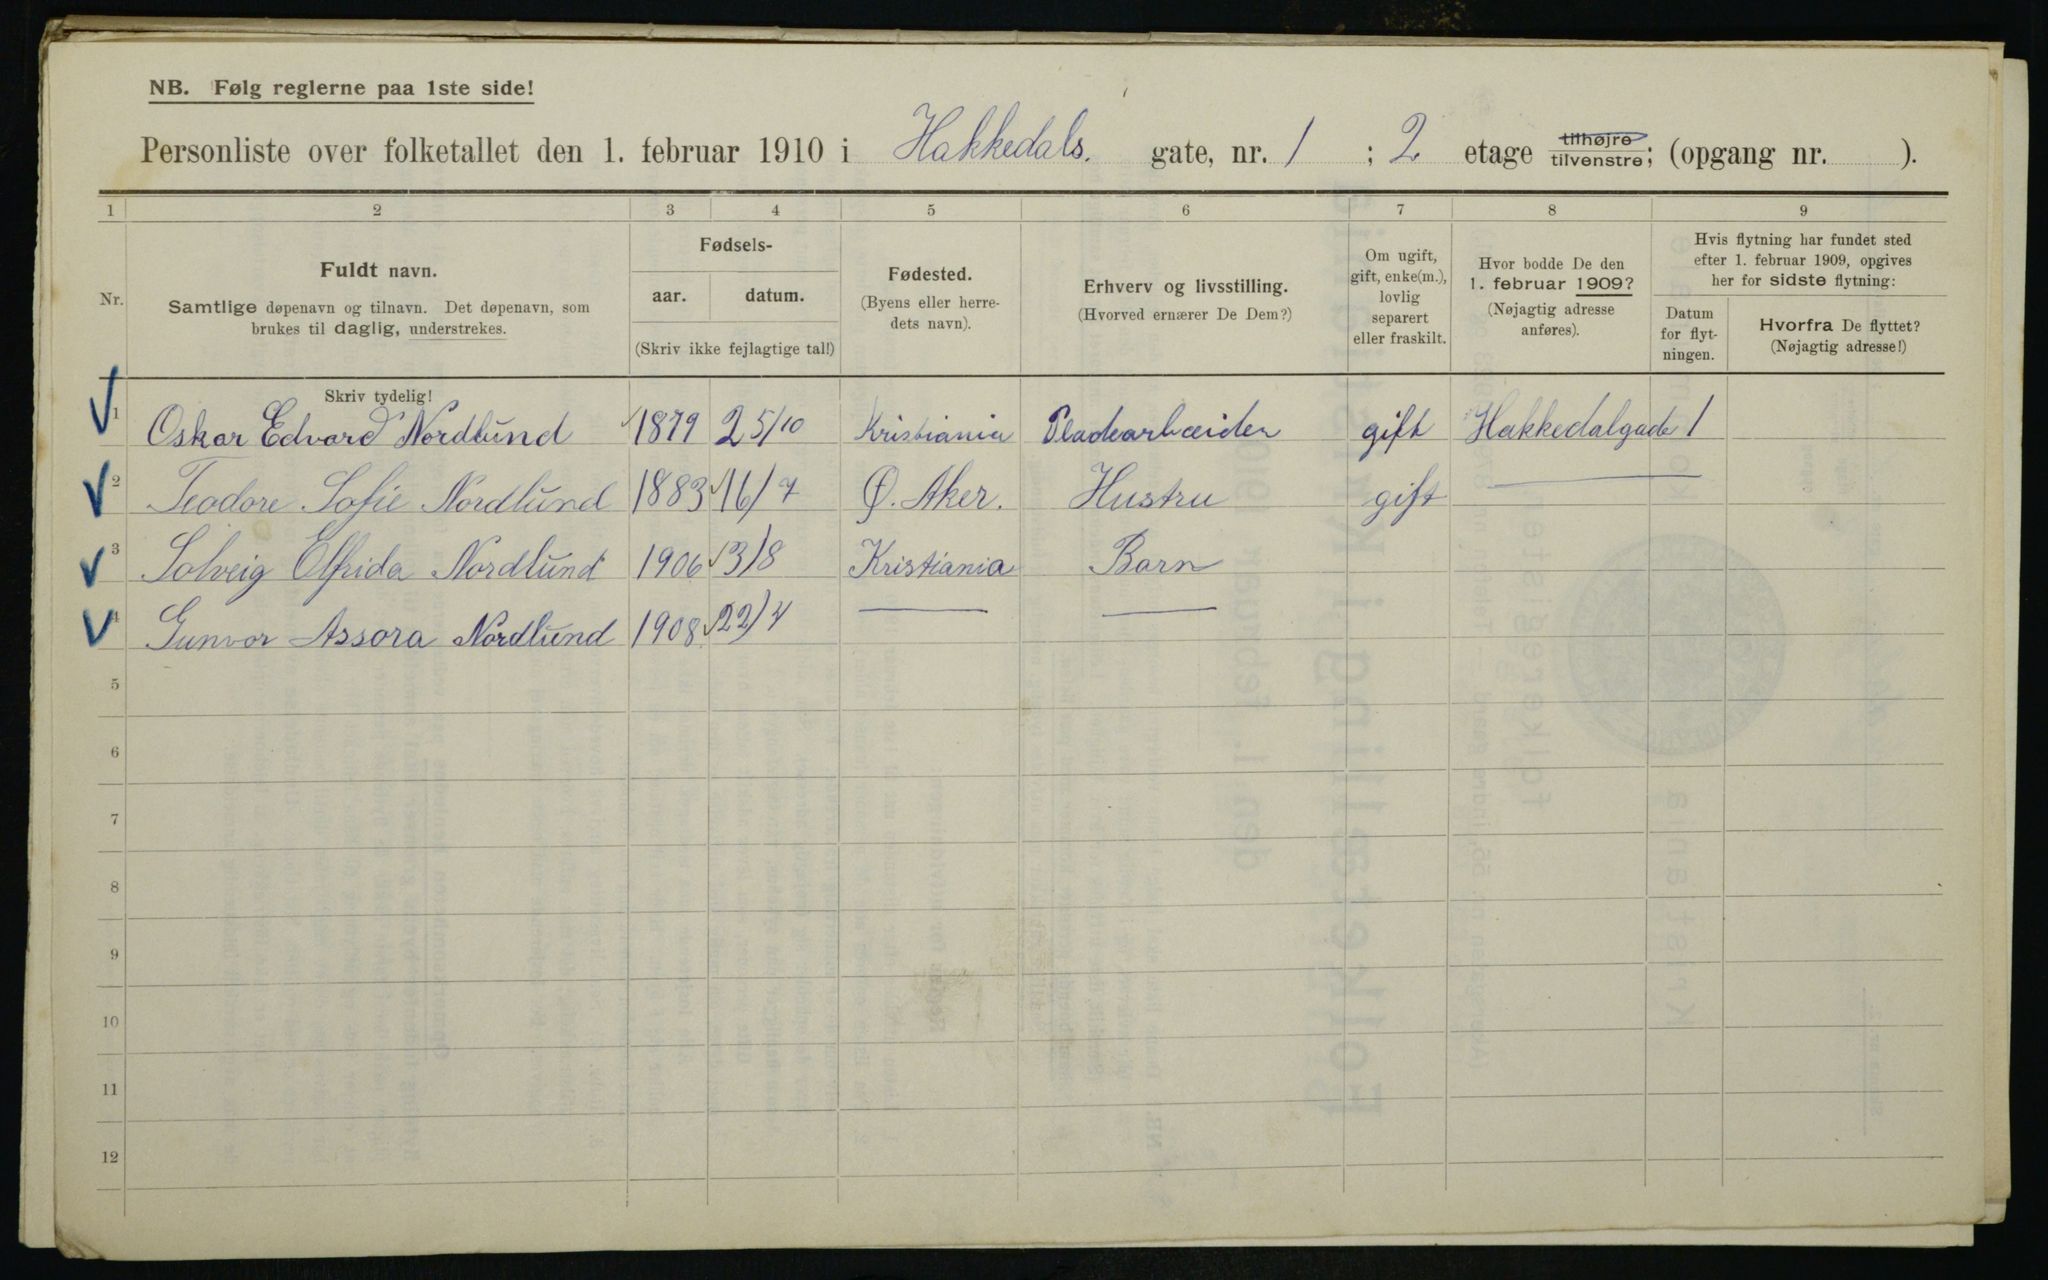 NB. Følg reglerne paa 1ste side!
Personliste over folketallet den 1. februar 1910 i Hakkedals. gate, nr. 1 ; 2 etage tilhøjre tilvenstre; (opgang nr. ).
1 2 3 4 5 6 7 8 9
Nr.
Fuldt navn.
Samtlige døpenavn og tilnavn. Det døpenavn, som
brukes til daglig, understrekes.
Fødsels-
aar. datum.
(Skriv ikke fejlagtige tal!)
Fødested.
(Byens eller herre-
dets navn).
Erhverv og livsstilling.
(Hvorved ernærer De Dem?)
Om ugift,
gift, enke(m.),
lovlig
separert
eller fraskilt.
Hvor bodde De den
1. februar 1909?
(Nøjagtig adresse
anføres).
Hvis flytning har fundet sted
efter 1. februar 1909, opgives
her for sidste flytning:
Datum
for flyt-
ningen.
Hvorfra De flyttet?
(Nøjagtig adresse!)
Skriv tydelig!
1 Oskar Edvard Nordlund 1879 25/10 Kristiania Pladearbeider gift Hakkedalgade 1
2 Teodore Sofie Nordlund 1883 16/7 Ø. Aker. Hustru gift
3 Solveig Elfrida Nordlund 1906 3/8 Kristiania Barn
4 Gunvor Assora Nordlund 1908 22/4
5
6
7
8
9
10
11
12